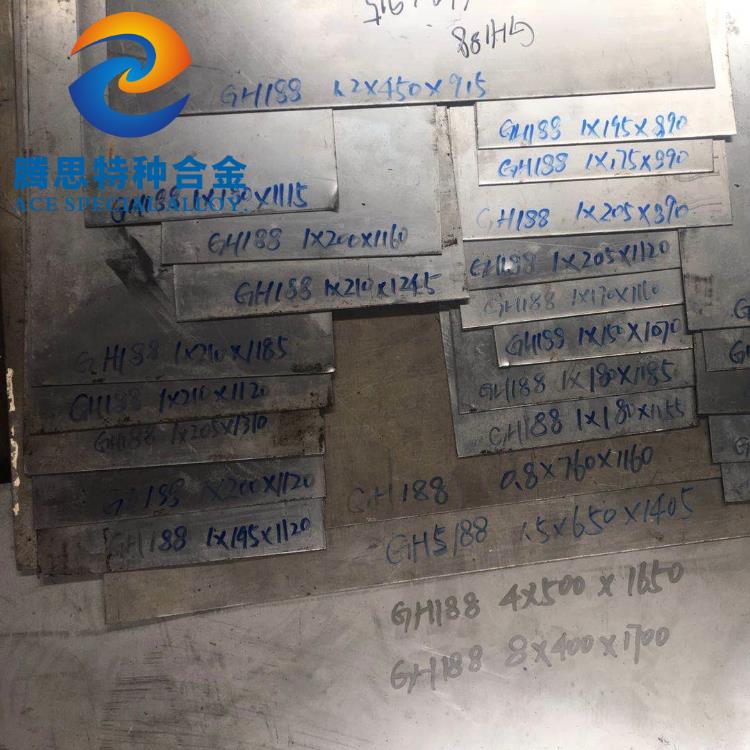 GH188
GH188 1.2×450×915
GH188 1×195×890
GH188 1×175×990
腾思特种合金
ACE SPECIAL ALLOY
GH188 1×205×890
GH188 1×200×1160
GH188 1×205×1120
GH188 1×210×1245
GH188 1×170×1160
GH188 1×150×1070
GH188 1×210×1185
GH188 1×180×1185
GH188 1×210×1120
GH188 1×180×1155
GH188 1×205×1310
GH188 0.8×760×1160
GH188 1×200×1120
GH5188 1.5×650×1405
GH188 1×195×1120
GH188 4×500×1650
GH188 8×400×1700